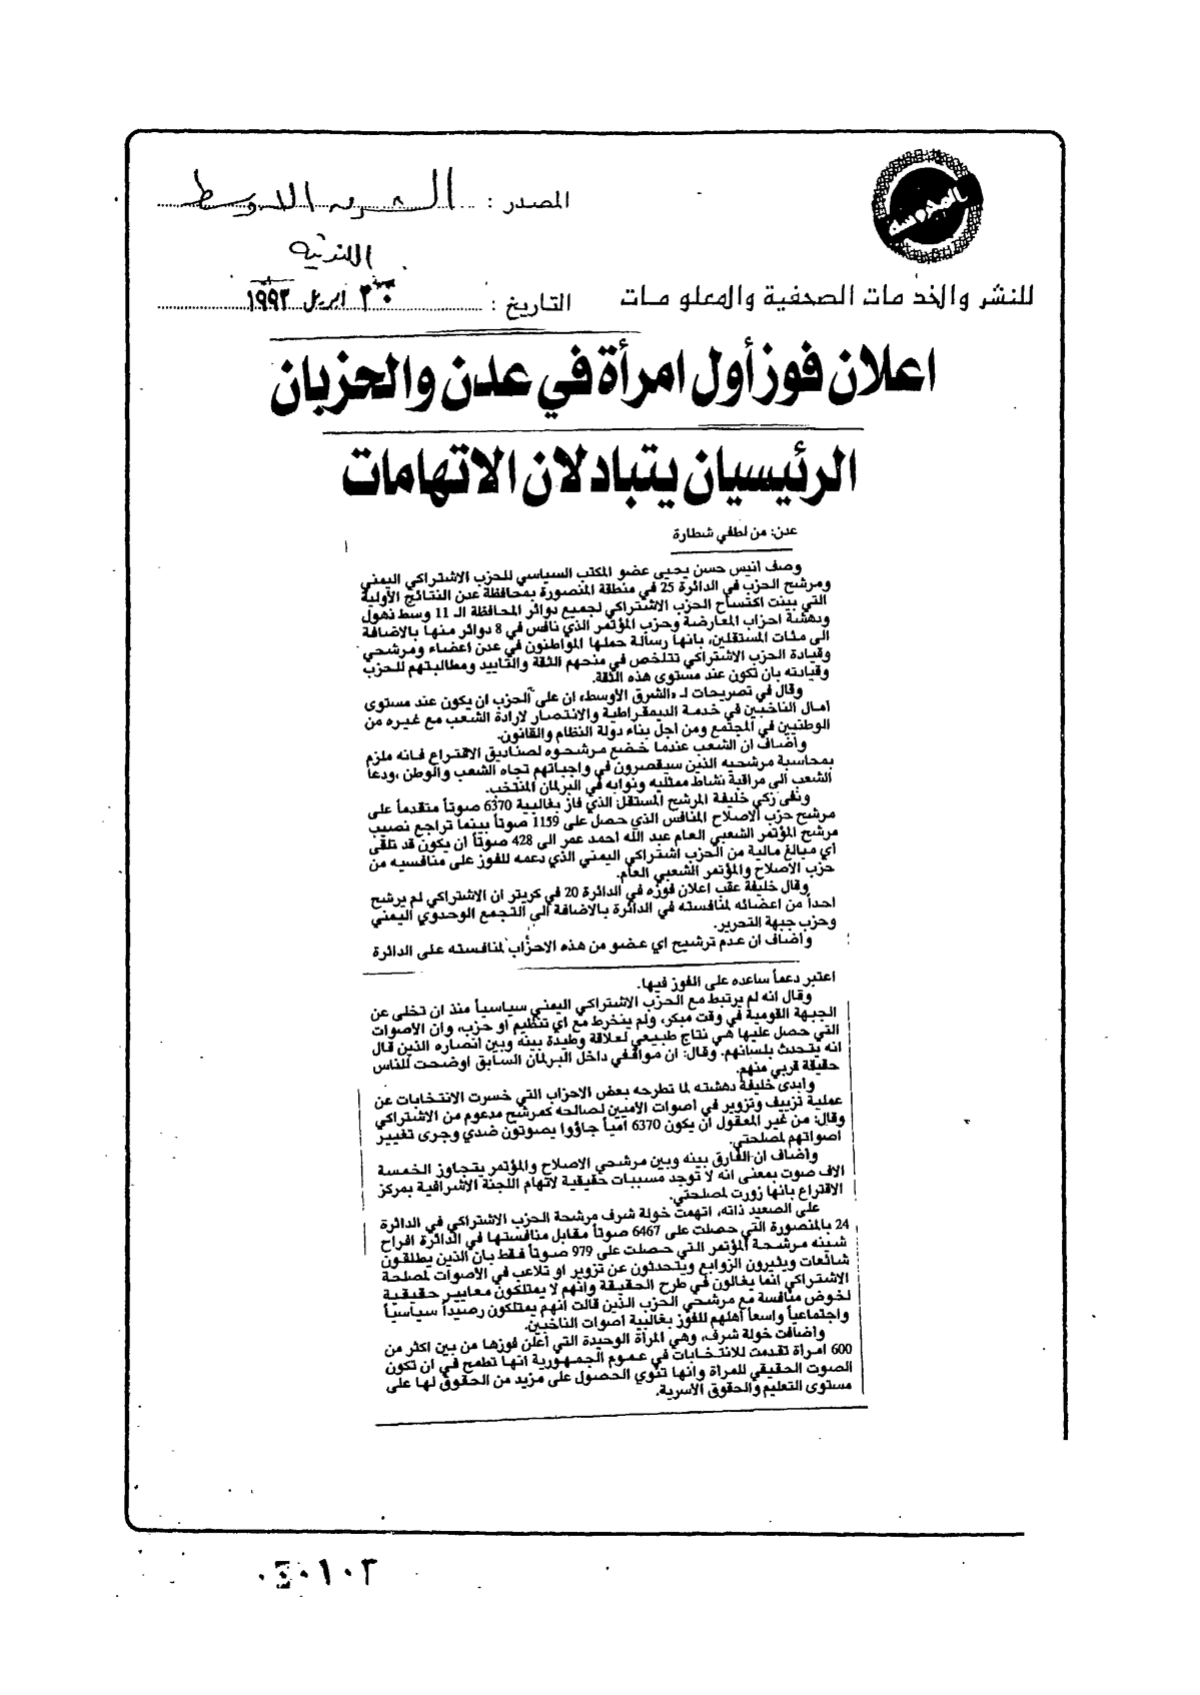 المحروسة
المصدر : الشرق الاوسط
اللندنية
للنشر والخدمات الصحفية والمعلومات
التاريخ : ٣٠ ابريل ١٩٩٣
اعلان فوز أول امرأة في عدن والحزبان
الرئيسيان يتبادلان الاتهامات
عدن: من لطفي شطارة
وصف انيس حسن يحيى عضو المكتب السياسي للحزب الاشتراكي اليمني
ومرشح الحزب في الدائرة 25 في منطقة المنصورة بمحافظة عدن النتائج الأولية
التي بينت اكتساح الحزب الاشتراكي لجميع دوائر المحافظة الـ 11 وسط ذهول
ودهشة احزاب المعارضة وحزب المؤتمر الذي نافس في 8 دوائر منها بالاضافة
الى مئات المستقلين، بانها رسالة حملها المواطنون في عدن اعضاء ومرشحي
وقيادة الحزب الاشتراكي تتلخص في منحهم الثقة والتاييد ومطالبتهم للحزب
وقيادته بان تكون عند مستوى هذه الثقة.
وقال في تصريحات لـ «الشرق الأوسط» ان على الحزب ان يكون عند مستوى
آمال الناخبين في خدمة الديمقراطية والانتصار لارادة الشعب مع غيره من
الوطنيين في المجتمع ومن اجل بناء دولة النظام والقانون.
واضاف ان الشعب عندما خضع مرشحوه لصناديق الاقتراع فانه ملزم
بمحاسبة مرشحيه الذين سيقصرون في واجباتهم تجاه الشعب والوطن ،ودعا
الشعب الى مراقبة نشاط ممثليه ونوابه في البرلمان المنتخب.
ونفى زكي خليفة المرشح المستقل الذي فاز بغالبية 6370 صوتاً متقدماً على
مرشح حزب الاصلاح المنافس الذي حصل على 1159 صوتاً بينما تراجع نصيب
مرشح المؤتمر الشعبي العام عبد الله احمد عمر الى 428 صوتاً ان يكون قد تلقى
أي مبالغ مالية من الحزب اشتراكي اليمني الذي دعمه للفوز على منافسيه من
حزب الاصلاح والمؤتمر الشعبي العام.
وقال خليفة عقب اعلان فوزه في الدائرة 20 في كريتر ان الاشتراكي لم يرشح
احداً من اعضائه لمنافسته في الدائرة بالاضافة الى التجمع الوحدوي اليمني
وحزب جبهة التحرير.
واضاف ان عدم ترشيح اي عضو من هذه الاحزاب لمنافسته على الدائرة
اعتبر دعماً ساعده على الفوز فيها.
وقال انه لم يرتبط مع الحزب الاشتراكي اليمني سياسياً منذ ان تخلى عن
الجبهة القومية في وقت مبكر، ولم ينخرط مع اي تنظيم او حزب، وان الاصوات
التي حصل عليها هي نتاج طبيعي لعلاقة وطيدة بينه وبين انصاره الذين قال
انه يتحدث بلسانهم. وقال: ان مواقفي داخل البرلمان السابق اوضحت للناس
حقيقة قربي منهم.
وابدى خليفة دهشته لما تطرحه بعض الاحزاب التي خسرت الانتخابات عن
عملية تزييف وتزوير في أصوات الاميين لصالحه كمرشح مدعوم من الاشتراكي
وقال: من غير المعقول ان يكون 6370 امياً جاؤوا يصوتون ضدي وجرى تغيير
اصواتهم لمصلحتي.
واضاف ان الفارق بينه وبين مرشحي الاصلاح والمؤتمر يتجاوز الخمسة
الاف صوت بمعنى انه لا توجد مسببات حقيقية لاتهام اللجنة الاشرافية بمركز
الاقتراع بانها زورت لمصلحتي.
على الصعيد ذاته، اتهمت خولة شرف مرشحة الحزب الاشتراكي في الدائرة
24 بالمنصورة التي حصلت على 6467 صوتاً مقابل منافستها في الدائرة افراح
شبنه مرشحة المؤتمر التي حصلت على 979 صوتاً فقط بان الذين يطلقون
شائعات ويثيرون الزوابع ويتحدثون عن تزوير او تلاعب في الأصوات لمصلحة
الاشتراكي انما يغالون في طرح الحقيقة وانهم لا يمتلكون معايير حقيقية
لخوض منافسة مع مرشحي الحزب الذين قالت انهم يمتلكون رصيداً سياسياً
واجتماعياً واسعاً اهلهم للفوز بغالبية اصوات الناخبين.
واضافت خولة شرف، وهي المرأة الوحيدة التي أعلن فوزها من بين اكثر من
600 امرأة تقدمت للانتخابات في عموم الجمهورية انها تطمح في ان تكون
الصوت الحقيقي للمراة وانها تنوي الحصول على مزيد من الحقوق لها على
مستوى التعليم والحقوق الأسرية.